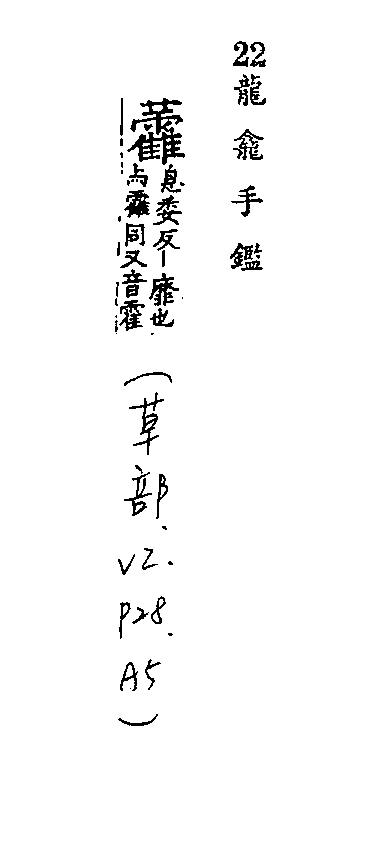 22龍龕手鑑
息委反丨靡也
与靃同又音霍
(草部、V2.P28.A5)